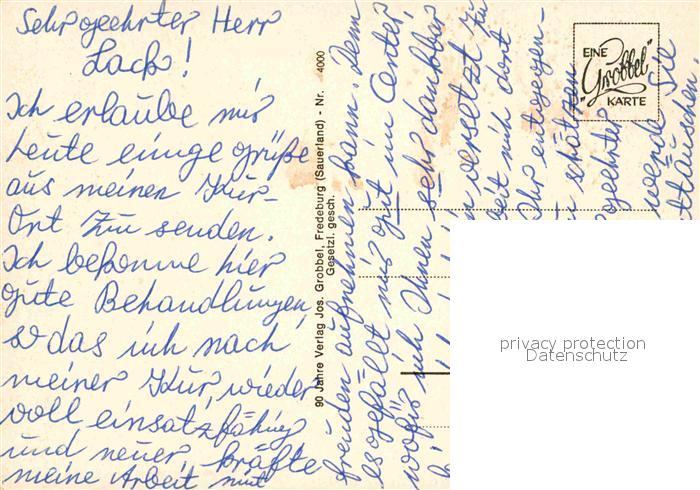 Sehr geehrter Herr
Lack!
Ich erlaube mir
heute einige Grüße
aus meinen Kur-
Ort zu senden.
Ich bekomme hier
gute Behandlungen,
so das ich nach
meiner Kur, wieder
voll einsatzfähig
und neuer kräfte
meine Arbeit mit
freuden aufnehmen kann. Denn
es gefällt mir gut im Center,
wofür ich Ihnen sehr dankbar
versetzt zu
mich dort
Ihr entgegen-
schätzen
geehrter
Sie
90 Jahre Verlag Jos. Grobbel, Fredeburg (Sauerland) - Nr. 4000
Gesetzl. gesch.
EINE
"Grobbel"
KARTE
privacy protection
Datenschutz